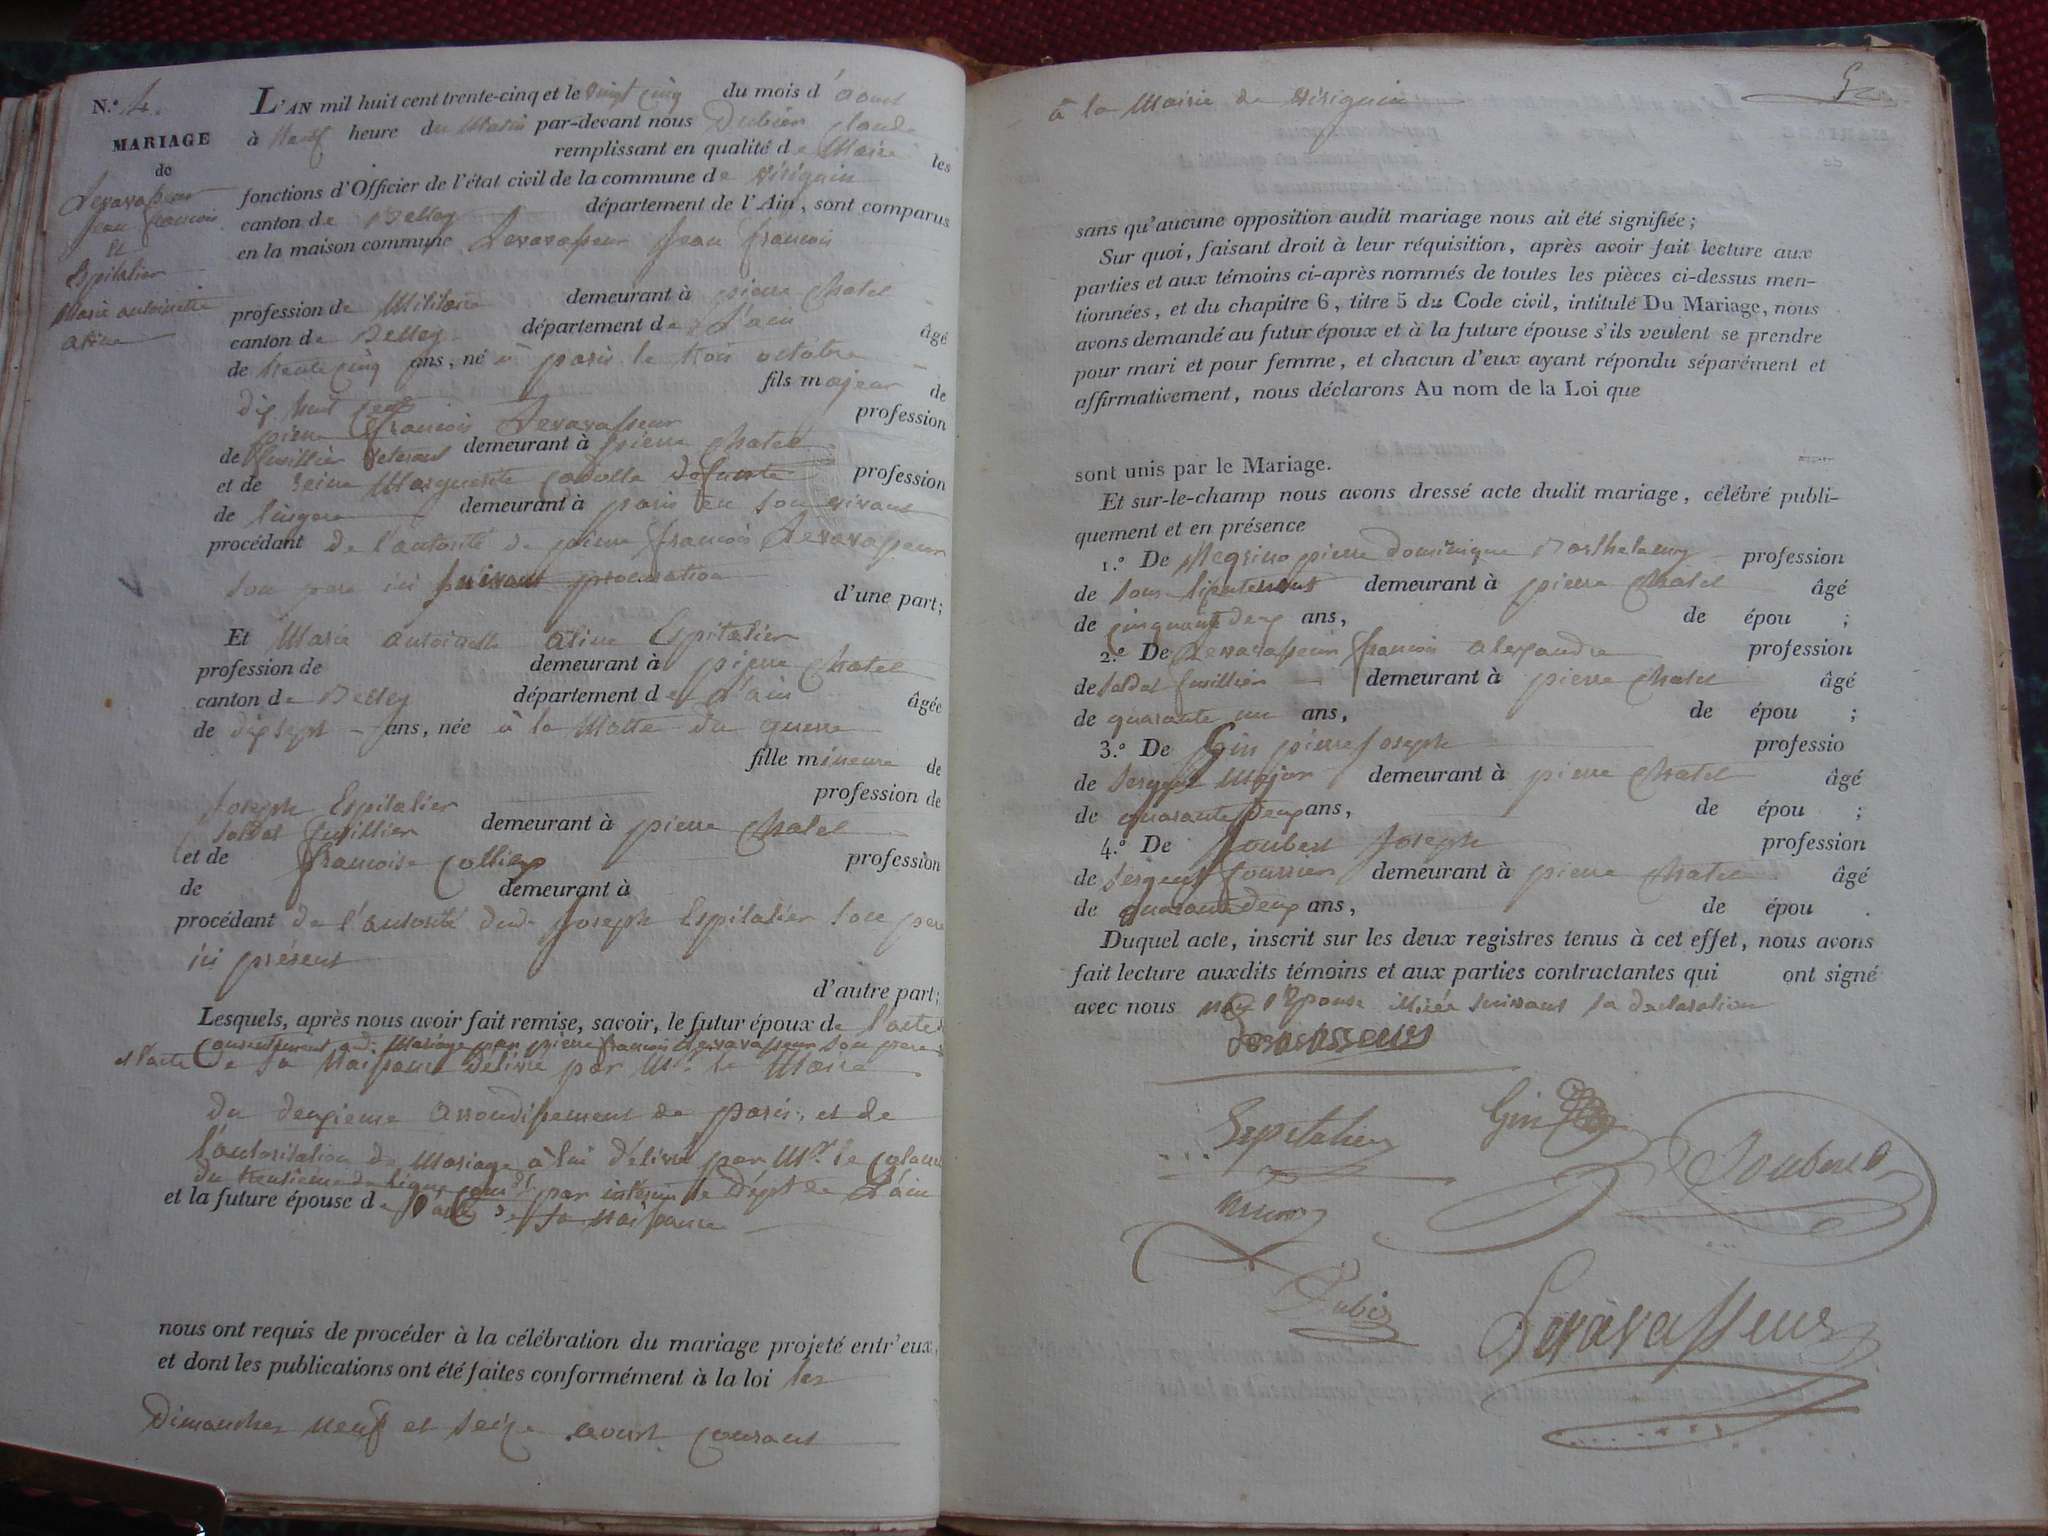 N.° 4.
MARIAGE
de
Levavasseur
Jean francois
Et
Espitalier
Marie antoinette
aline
L'AN mil huit cent trente-cinq et le vingt cinq du mois d'aout
à Neuf heure du Matin par-devant nous Dubier claude
remplissant en qualité de Maire les
fonctions d'Officier de l'état civil de la commune de virignin
canton de Belley département de l'Ain, sont comparus
en la maison commune Levavasseur Jean francois
profession de Militaire demeurant à pierre Chatel
canton de Belley département de L'ain âgé
de trente cinq ans, né à paris le trois octobre
dix huit cent fils majeur de
pierre francois Levavasseur profession
de fusillier veteran demeurant à pierre Chatel
et de reine Marguerite Cadolle defunte profession
de lingere demeurant à paris en son vivant
procédant de l'autorité de pierre francois Levavasseur
son pere ici suivant procuration
d'une part;
Et Marie antoinette aline Espitalier
profession de demeurant à pierre Chatel
canton de Belley département de L'ain âgée
de dix sept ans, née à la Motte du querre
fille mineure de
Joseph Espitalier profession de
soldat fusillier demeurant à pierre Chatel
et de francoise Collier profession
de demeurant à
procédant de l'autorité dud. Joseph Espitalier son pere
ici présent
d'autre part;
Lesquels, après nous avoir fait remise, savoir, le futur époux de l'acte
Consentement audi Mariage par pierre francois Levavasseur son pere
et l'acte de sa Naissance délivré par Mr. le Maire
du deuxieme arrondissement de paris, et de
l'autorisation de Mariage à lui délivré par Mr. le Colonel
du trentieme de Ligne comdt par interim le Dépt de L'ain
et la future épouse de l'acte de sa Naissance
nous ont requis de procéder à la célébration du mariage projeté entr'eux,
et dont les publications ont été faites conformément à la loi les
Dimanches neuf et seize aout courant
à la Mairie de virignin
sans qu'aucune opposition audit mariage nous ait été signifiée;
Sur quoi, faisant droit à leur réquisition, après avoir fait lecture aux
parties et aux témoins ci-après nommés de toutes les pièces ci-dessus men-
tionnées, et du chapitre 6, titre 5 du Code civil, intitulé Du Mariage, nous
avons demandé au futur époux et à la future épouse s'ils veulent se prendre
pour mari et pour femme, et chacun d'eux ayant répondu séparément et
affirmativement, nous déclarons Au nom de la Loi que
sont unis par le Mariage.
Et sur-le-champ nous avons dressé acte dudit mariage, célébré publi-
quement et en présence
1.° De pierre dominique Barthelemy profession
de sous lieutenant demeurant à pierre Chatel âgé
de cinquante deux ans, de épou ;
2.° De Levavasseur francois alexandre profession
de soldat fusillier demeurant à pierre Chatel âgé
de quarante un ans, de épou ;
3.° De Gin pierre Joseph professio
de sergent Major demeurant à pierre Chatel âgé
de quarante deux ans, de épou ;
4.° De Joubert Joseph profession
de sergent fourrier demeurant à pierre Chatel âgé
de quarante deux ans, de épou .
Duquel acte, inscrit sur les deux registres tenus à cet effet, nous avons
fait lecture auxdits témoins et aux parties contractantes qui ont signé
avec nous non l'Epouse illitée suivant sa declaration
Levavasseur
Espitalier
Gin
Joubert
Dubier
Levavasseur